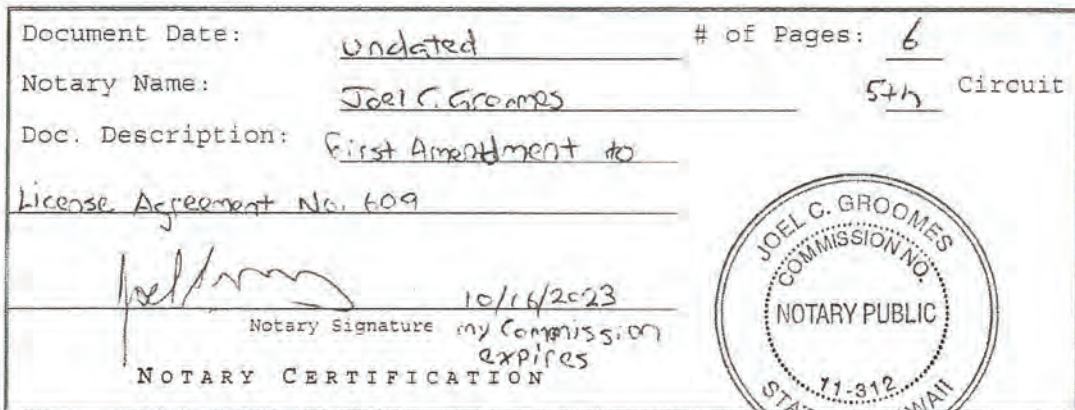 Document Date: undated # of Pages: 6
Notary Name: Joel C. Groomes 5th Circuit
Doc. Description: First Amendment to
License Agreement No. 609
10/16/2023
Notary Signature my Commission
expires
NOTARY CERTIFICATION
JOEL C. GROOMES
COMMISSION NO.
NOTARY PUBLIC
11-312